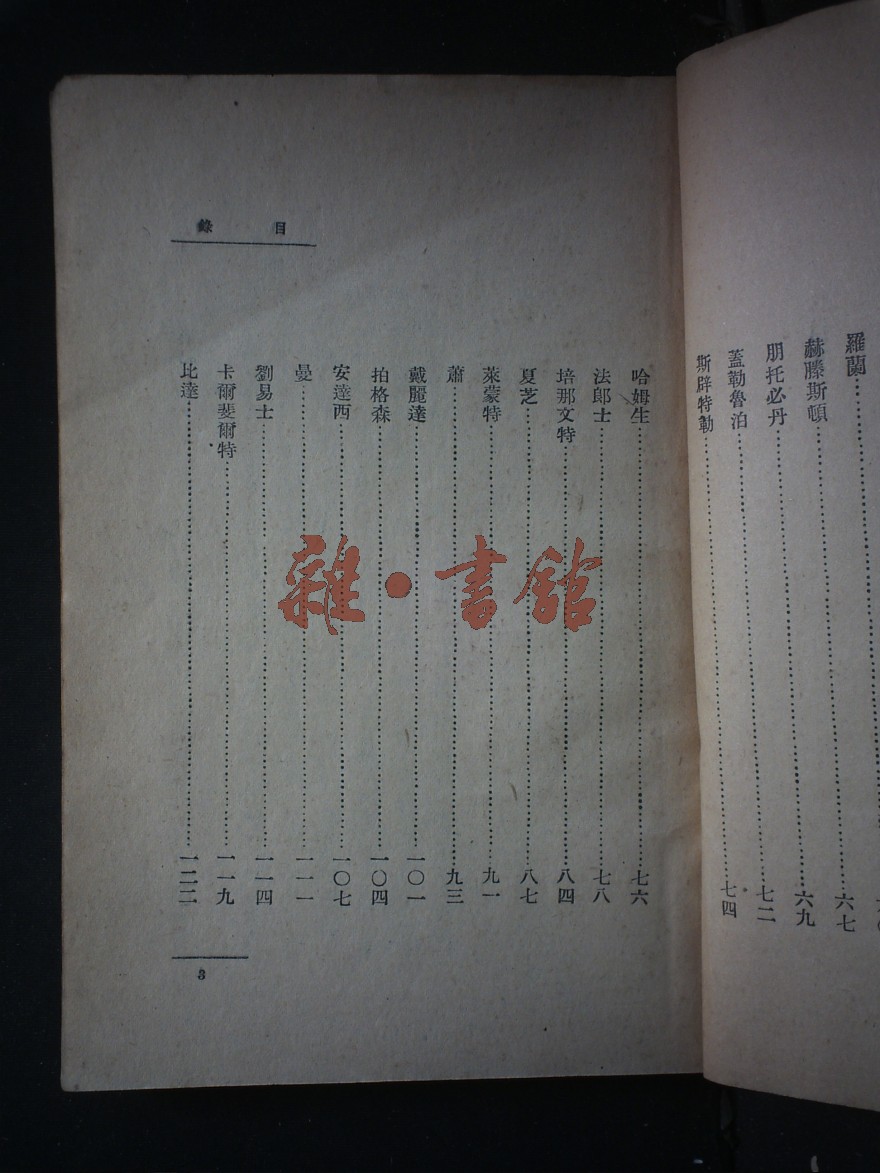 羅蘭
赫滕斯頓……六七
朋托必丹……六九
蓋勒魯泊……七二
斯辟特勒……七四
目錄
哈姆生……七六
法郎士……七八
培那文特……八四
夏芝……八七
萊蒙特……九一
蕭……九三
戴麗達……一〇一
拍格森……一〇四
安達西……一〇七
曼……一一一
劉易士……一一四
卡爾斐爾特……一一九
比達……一二二
3
雜·書館